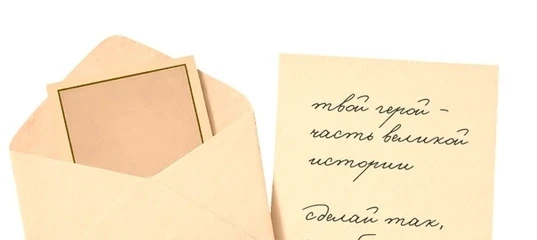 твой герой -
часть великой
истории
сделай так,